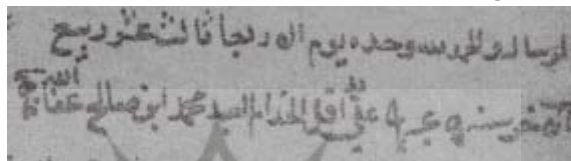 لرساله والحمد لله وحده يوم الاربعا ثالث عشر ربيع
الاخر سنه على اقل الخدام السيد محمد ابن صالح عفا الله